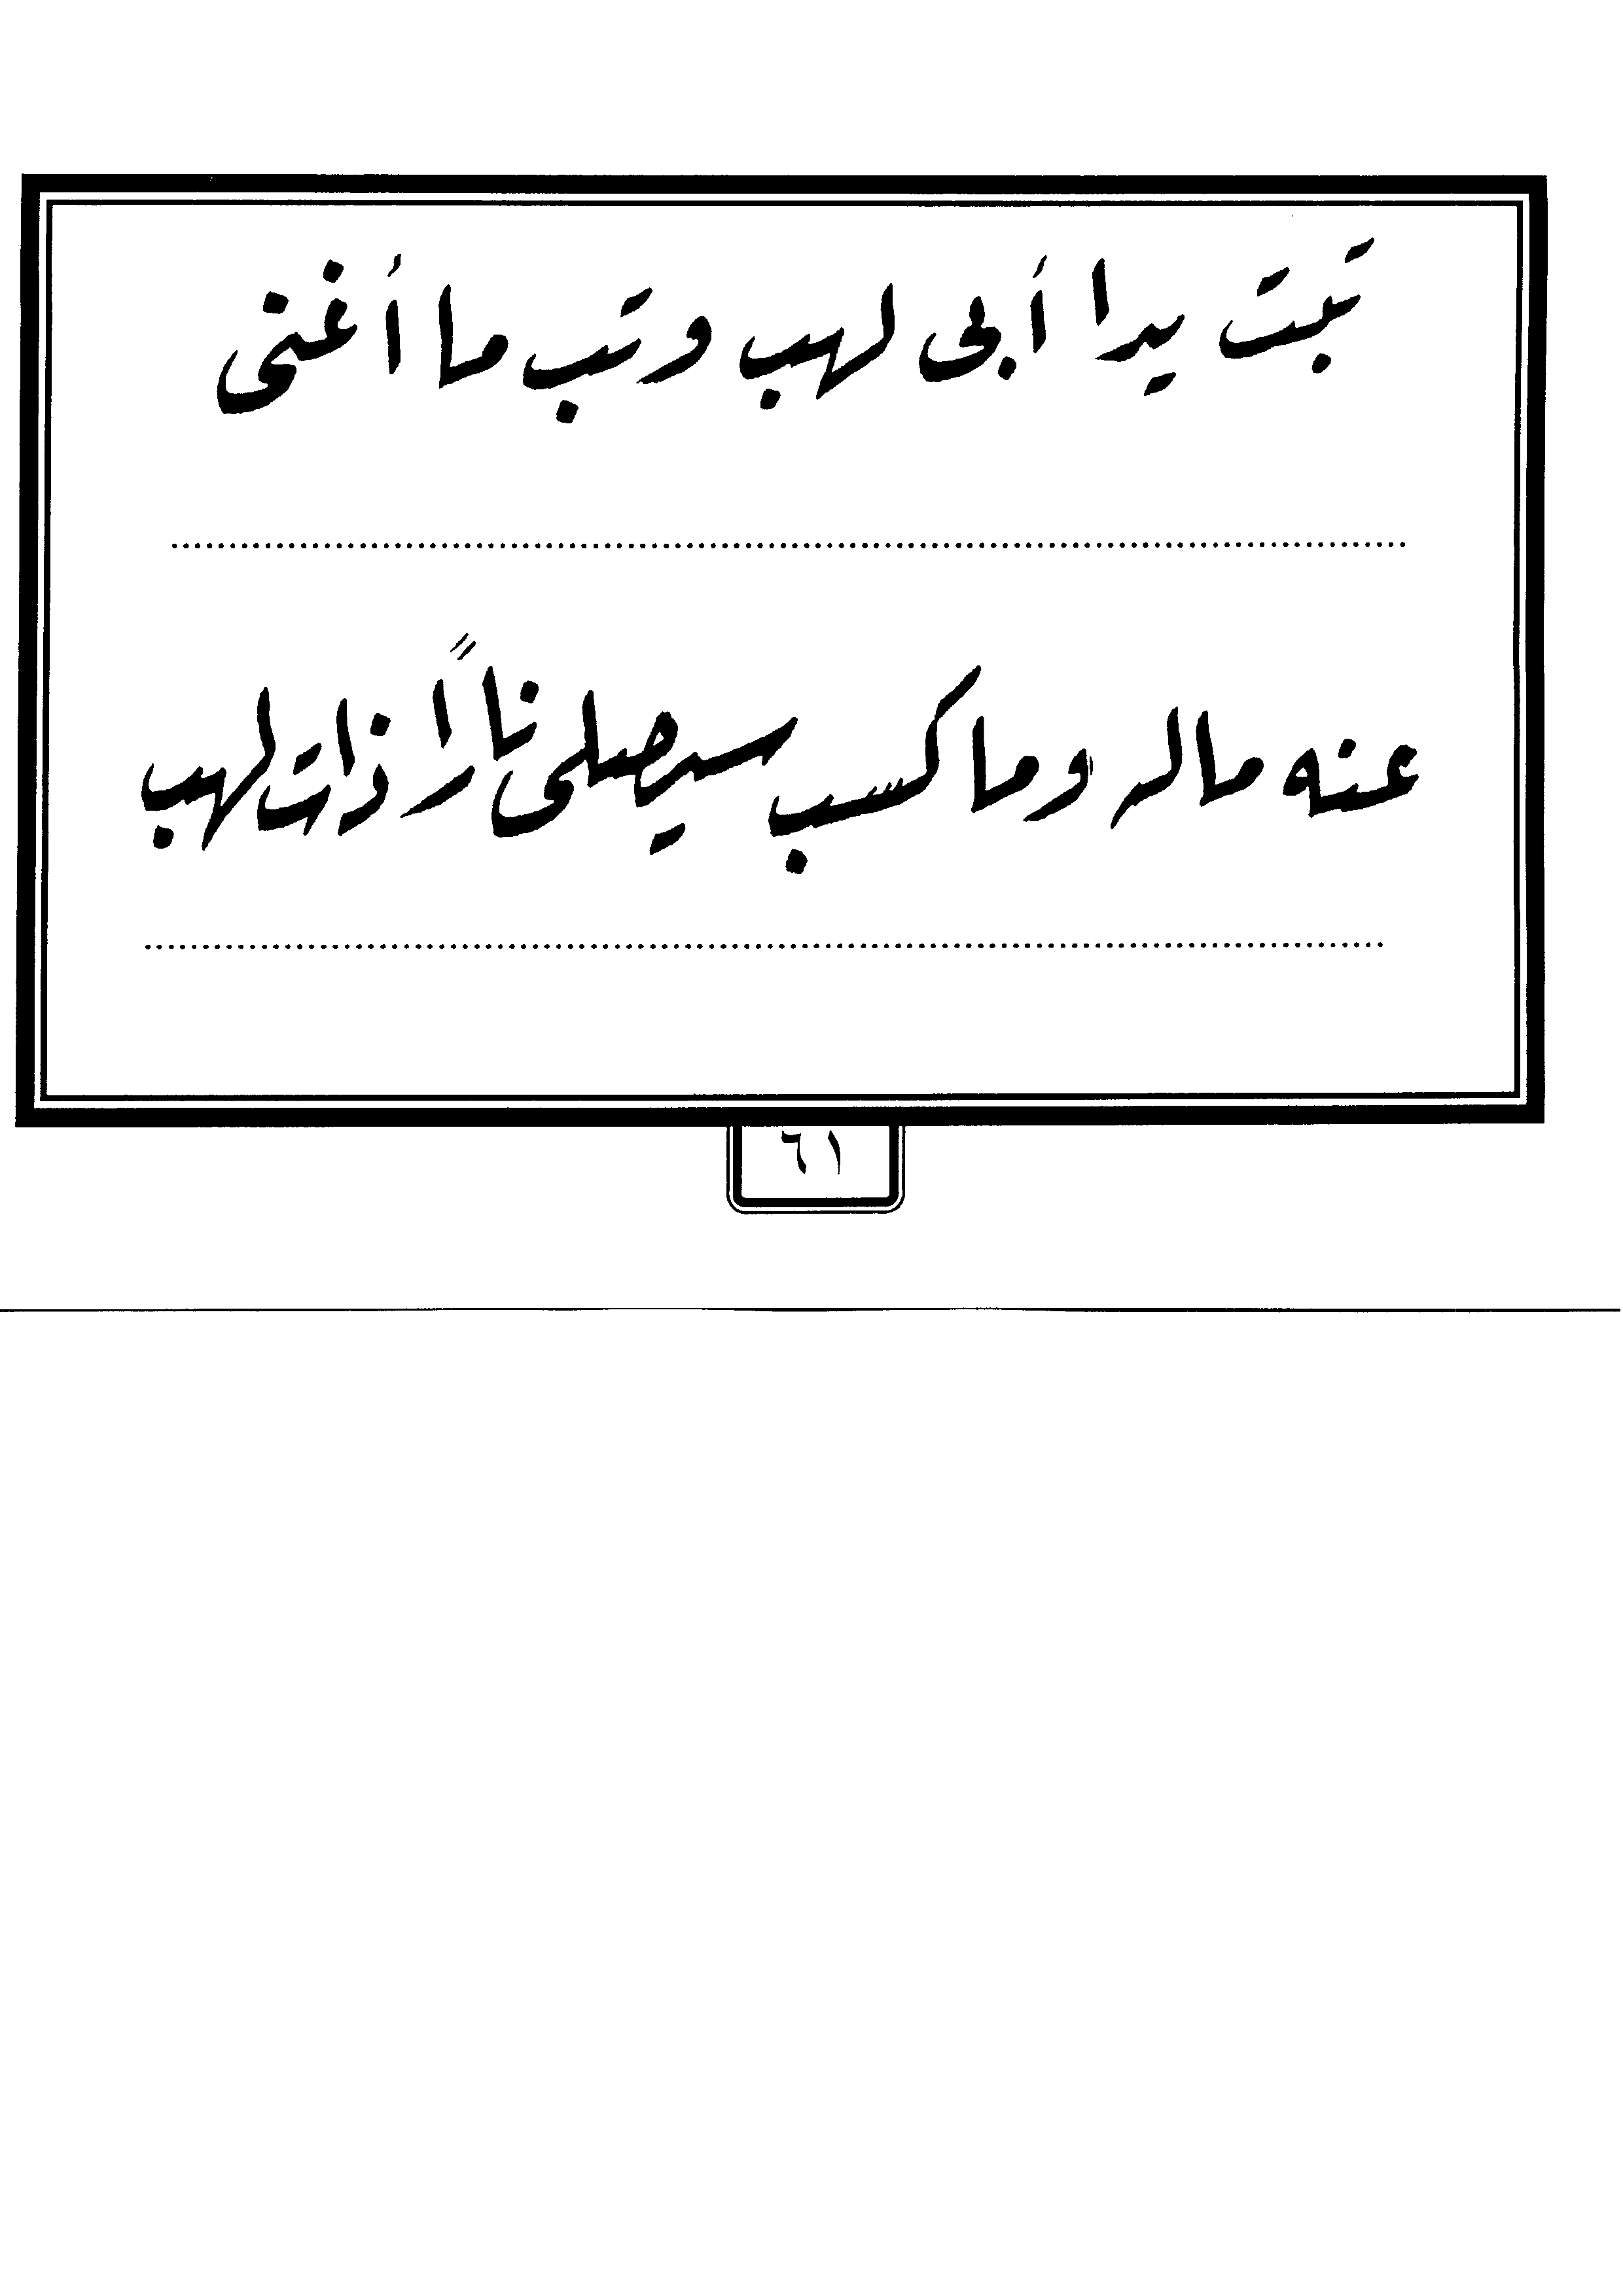 تبت يدا أبى لهب وتب ما أغنى
عنه ماله وما كسب سيصلى ناراً ذات لهب
٦١